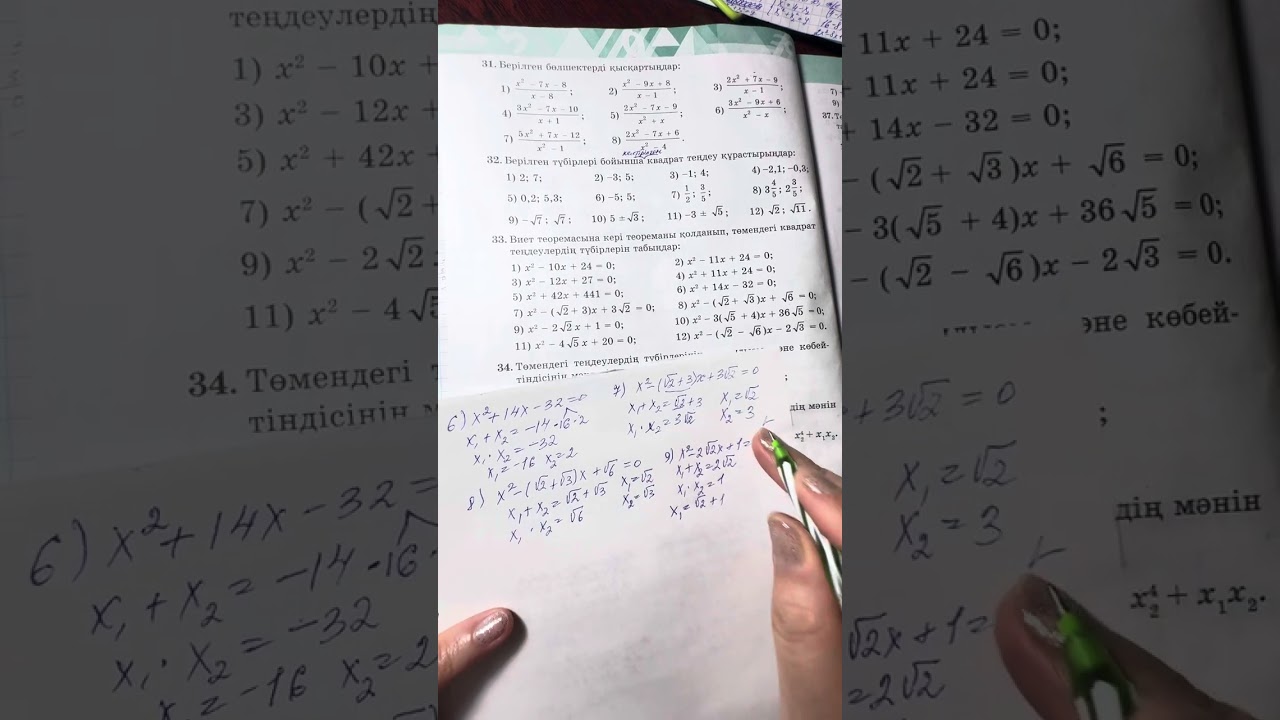 31. Берілген бөлшектерді қысқартыңдар:
1) (x² − 7x − 8)/(x − 8); 2) (x² − 9x + 8)/(x − 1); 3) (2x² + 7x − 9)/(x − 1);
4) (3x² − 7x − 10)/(x + 1); 5) (2x² − 7x − 9)/(x² + x); 6) (3x² − 9x + 6)/(x² − x);
7) (5x² + 7x − 12)/(x² − 1); 8) (2x² − 7x + 6)/(x² − 4).
32. Берілген түбірлері бойынша квадрат теңдеу құрастырыңдар:
1) 2; 7; 2) −3; 5; 3) −1; 4; 4) −2,1; −0,3;
5) 0,2; 5,3; 6) −5; 5; 7) 1/2; 3/5; 8) 3 4/5; 2 3/5;
9) −√7; √7; 10) 5 ± √3; 11) −3 ± √5; 12) √2; √11.
33. Виет теоремасына кері теореманы қолданып, төмендегі квадрат
теңдеулердің түбірлерін табыңдар:
1) x² − 10x + 24 = 0; 2) x² − 11x + 24 = 0;
3) x² − 12x + 27 = 0; 4) x² + 11x + 24 = 0;
5) x² + 42x + 441 = 0; 6) x² + 14x − 32 = 0;
7) x² − (√2 + 3)x + 3√2 = 0; 8) x² − (√2 + √3)x + √6 = 0;
9) x² − 2√2x + 1 = 0; 10) x² − 3(√5 + 4)x + 36√5 = 0;
11) x² − 4√5x + 20 = 0; 12) x² − (√2 − √6)x − 2√3 = 0.
34. Төмендегі теңдеулердің түбірлерінің әне көбей-
тіндісінің
;
дің мәнін
x₂⁴ + x₁x₂.
6) x² + 14x − 32 = 0
x₁ + x₂ = −14 −16·2
x₁ · x₂ = −32
x₁ = −16 x₂ = 2
7) x² − (√2 + 3)x + 3√2 = 0
x₁ + x₂ = √2 + 3 x₁ = √2
x₁ · x₂ = 3√2 x₂ = 3
8) x² − (√2 + √3)x + √6 = 0
x₁ + x₂ = √2 + √3 x₁ = √2
x₁ · x₂ = √6 x₂ = √3
9) x² − 2√2x + 1 =
x₁ + x₂ = 2√2
x₁ · x₂ = 1
x₁ = √2 + 1